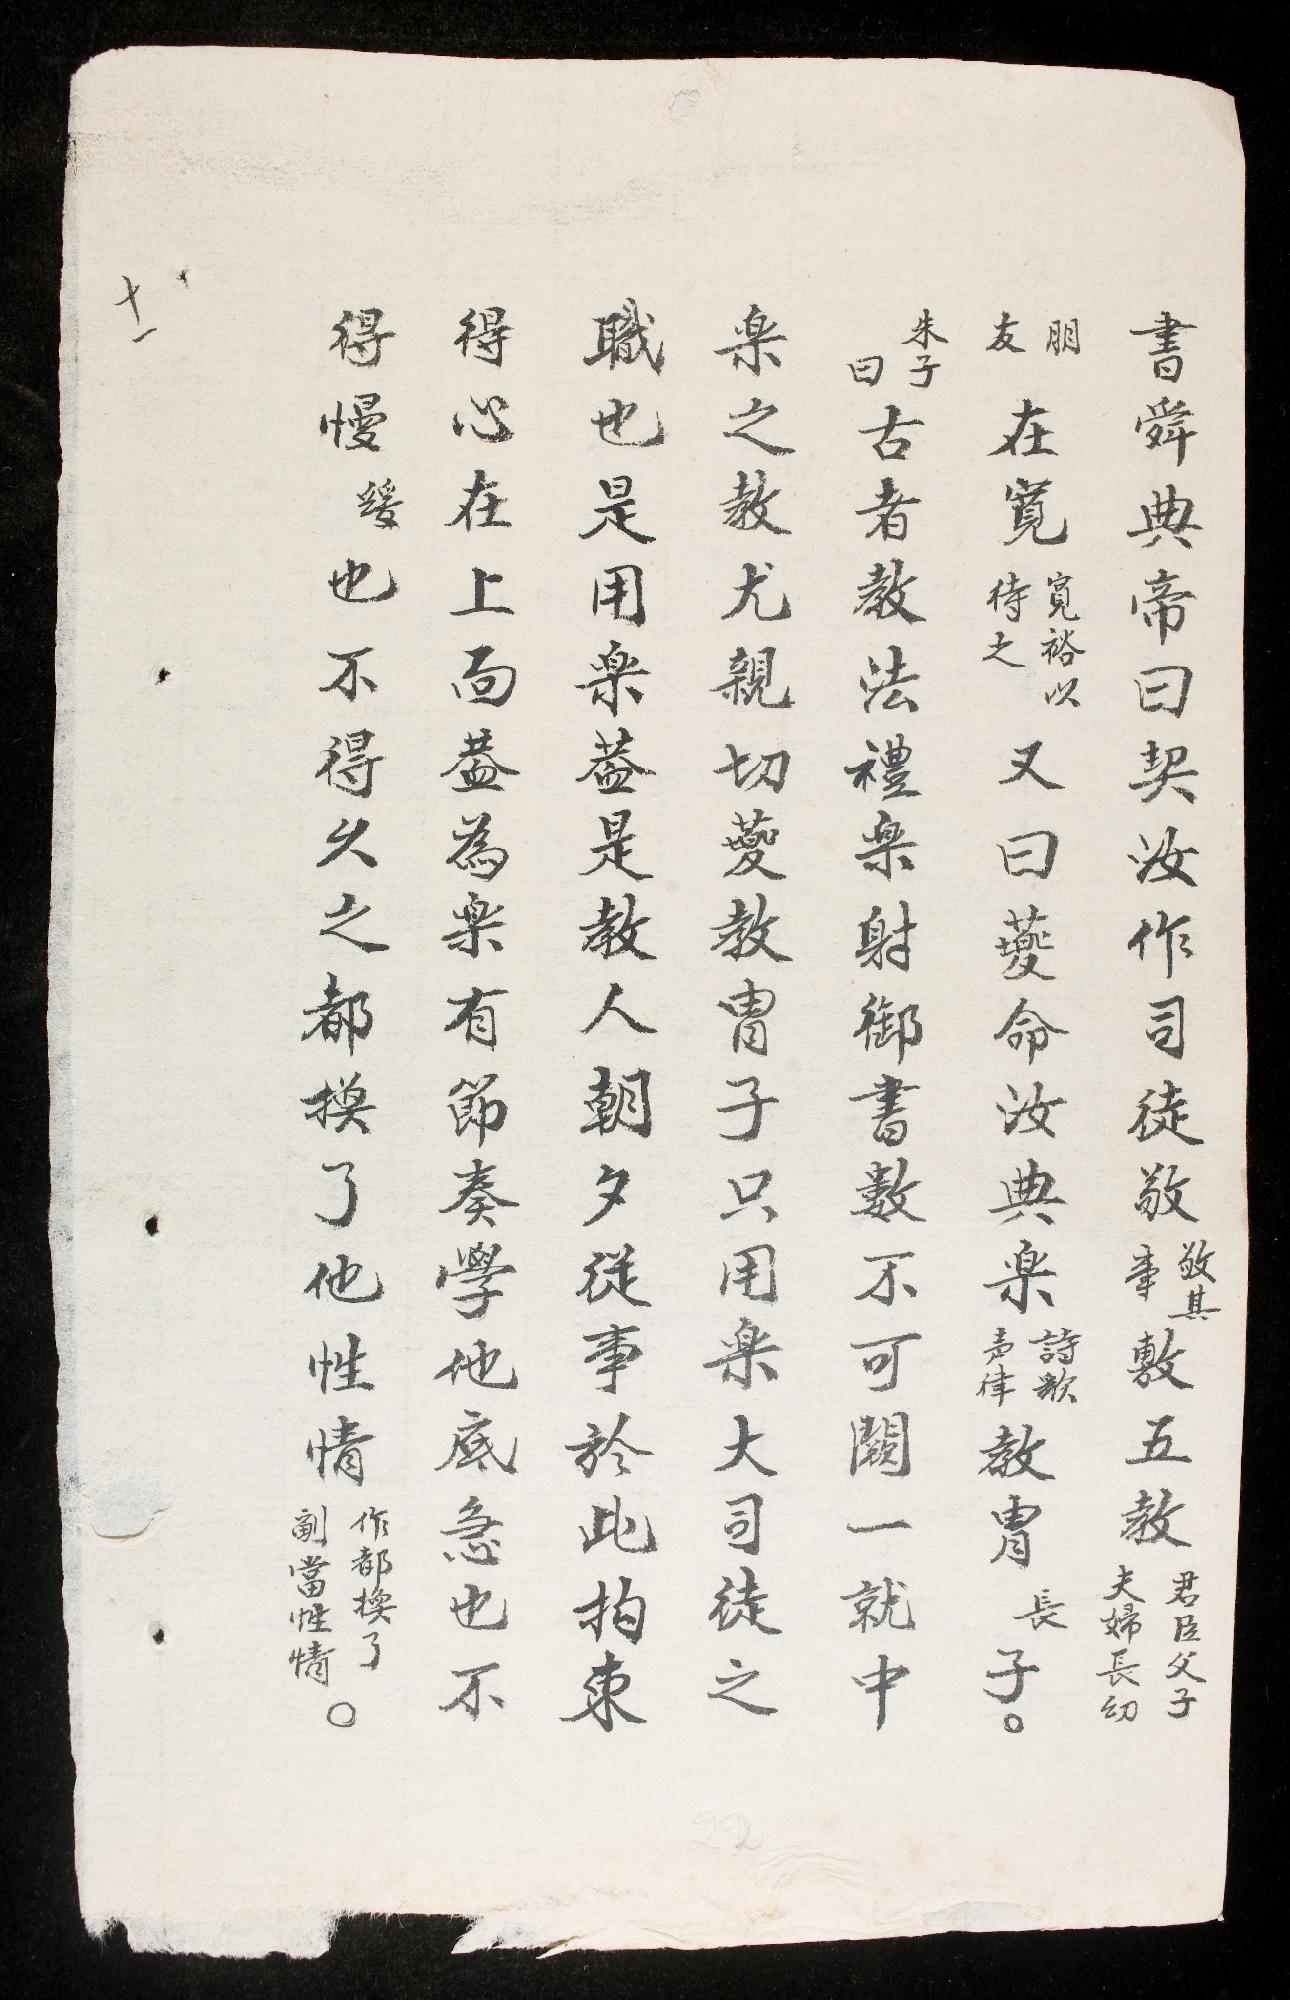 書舜典帝曰契汝作司徒敬敬其事敷五教君臣父子夫婦長幼
朋友在寬寬裕以待之又曰夔命汝典楽詩歌声律教胄長子。
朱子曰古者教法禮楽射御書數不可闕一就中
楽之教尤親切夔教胄子只用楽大司徒之
職也是用楽葢是教人朝夕從事於此拘束
得心在上面葢為楽有節奏學他底急也不
得慢緩也不得久之都換了他性情作都換了副當性情。
十一
22